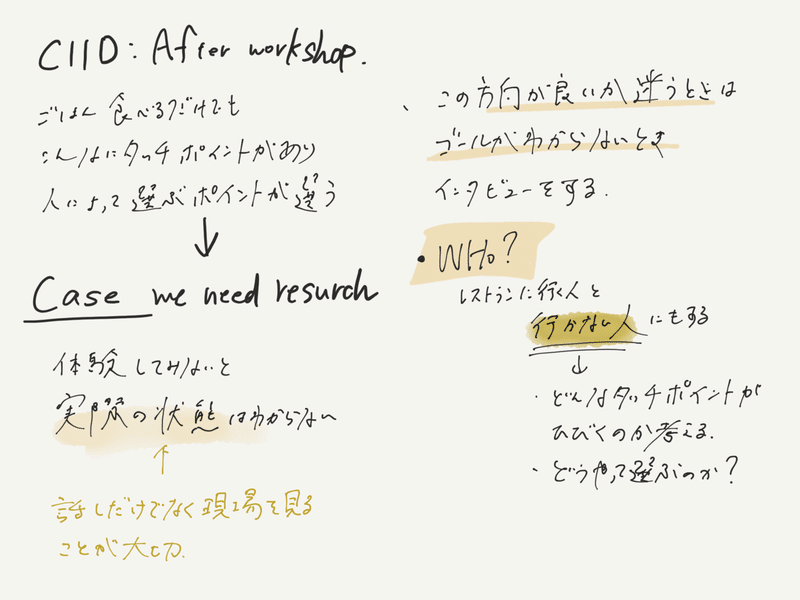 CIID: After workshop.
ごはん食べるだけでも
こんなにタッチポイントがあり
人によって選ぶポイントが違う
Case we need resurch
体験してみないと
実際の状態はわからない
話しだけでなく現場を見る
ことが大切.
この方向が良いか迷うときは
ゴールがわからないとき
インタビューをする.
・WHo?
レストランに行く人と
行かない人にもする
・どんなタッチポイントが
ひびくのか考える.
・どうやって選ぶのか?